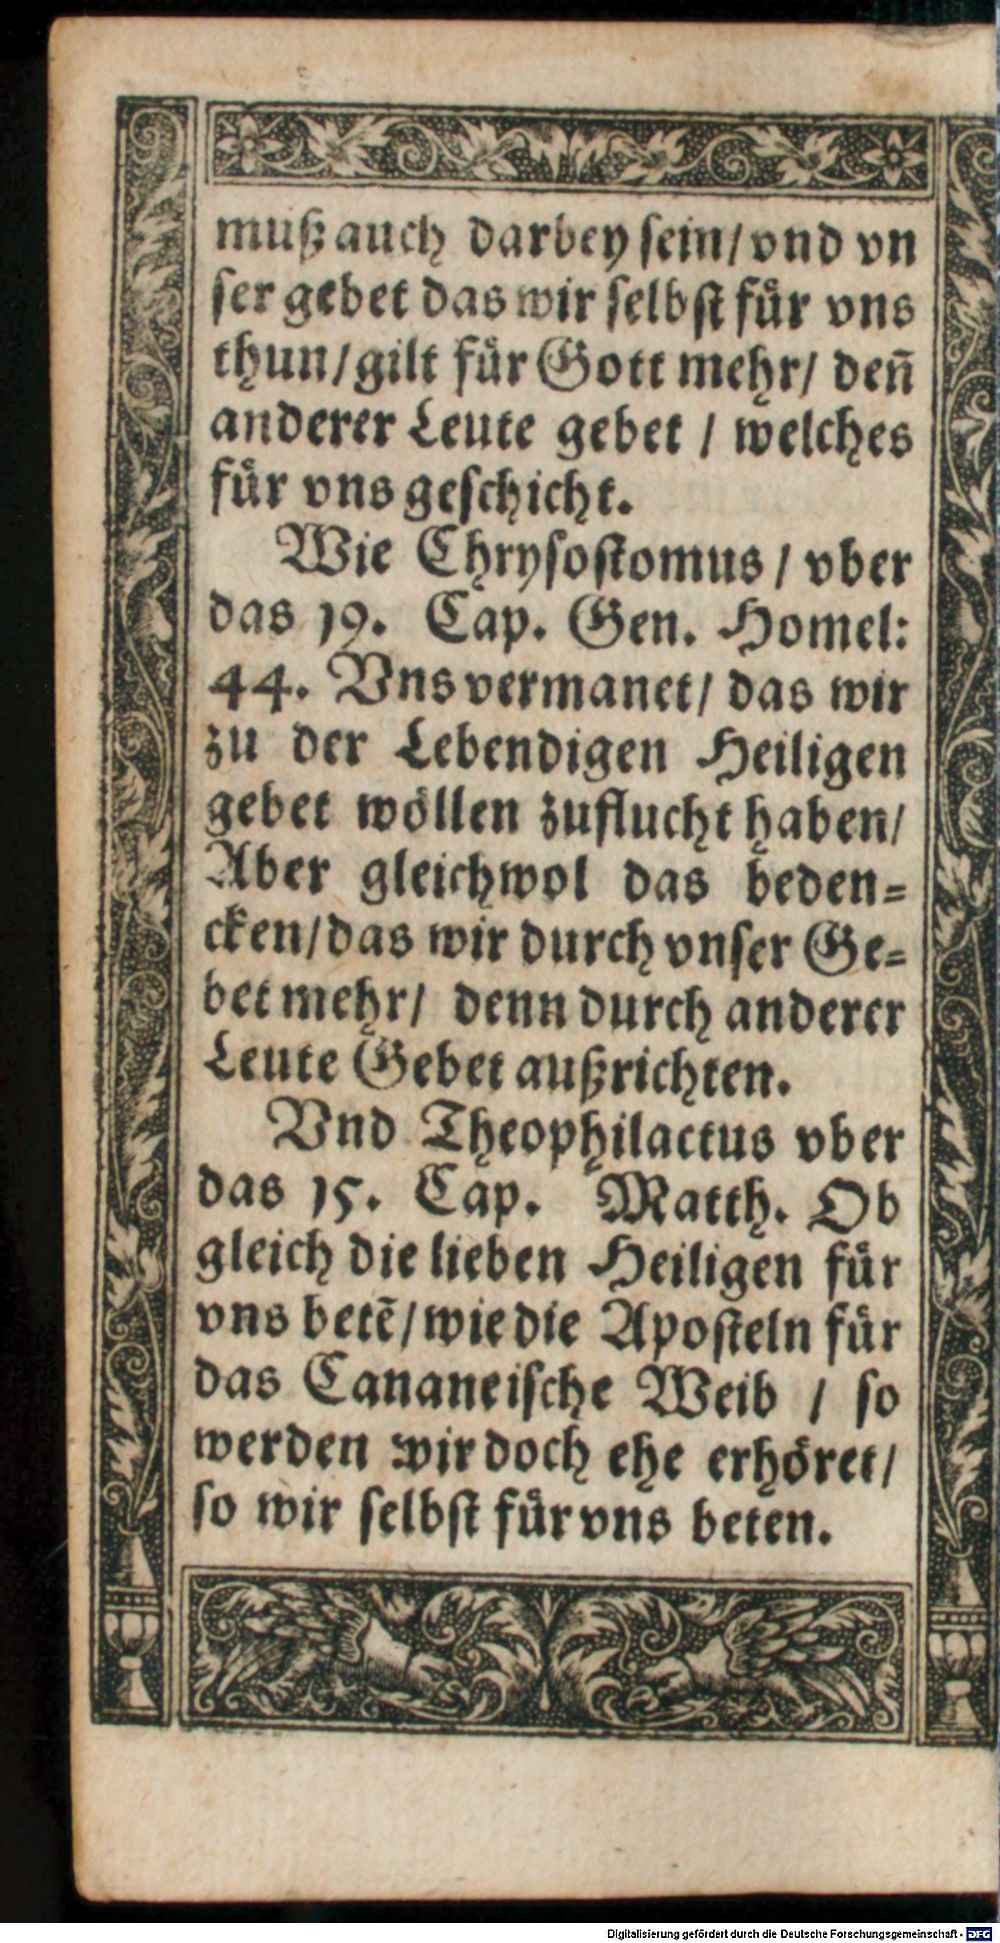 muß auch darbey sein/ vnd vn
ser gebet das wir selbst fuͤr vns
thun/ gilt fuͤr Gott mehr/ den̄
anderer Leute gebet / welches
fuͤr vns geschicht.
Wie Chrysostomus / vber
das 19. Cap. Gen. Homel:
44. Vns vermanet/ das wir
zu der Lebendigen Heiligen
gebet woͤllen zuflucht haben/
Aber gleichwol das beden=
cken/ das wir durch vnser Ge=
bet mehr/ denn durch anderer
Leute Gebet außrichten.
Vnd Theophilactus vber
das 15. Cap. Matth. Ob
gleich die lieben Heiligen fuͤr
vns betē/ wie die Aposteln fuͤr
das Cananeische Weib / so
werden wir doch ehe erhoͤret/
so wir selbst fuͤr vns beten.
Digitalisierung gefördert durch die Deutsche Forschungsgemeinschaft - DFG